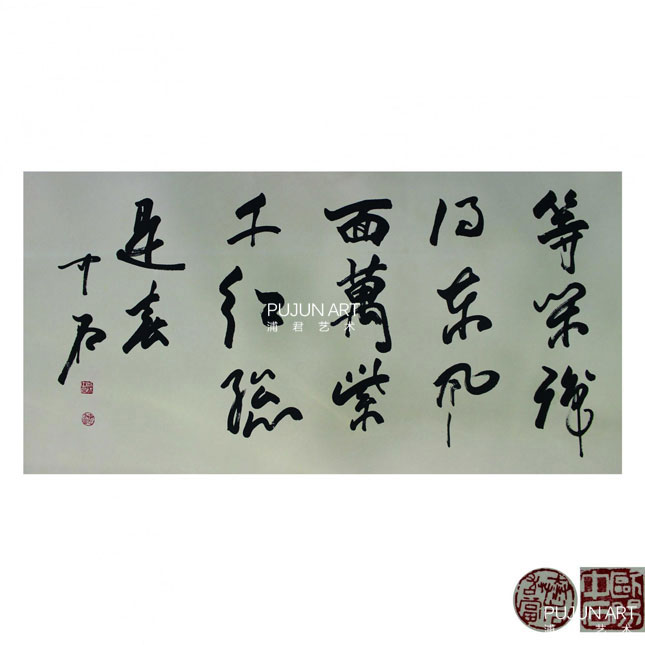 等閑識
得東風
面萬紫
千紅總
是春
中石
PUJUN ART
浦君艺术
歐陽中石
PUJUN ART
浦君艺术